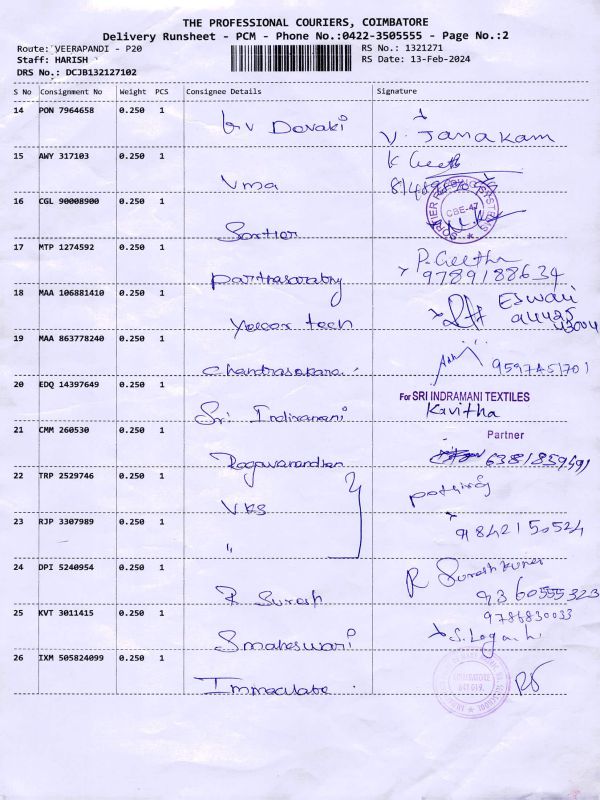 THE PROFESSIONAL COURIERS, COIMBATORE
Delivery Runsheet - PCM - Phone No.:0422-3505555 - Page No.:2
Route: VEERAPANDI - P20
RS No.: 1321271
Staff: HARISH
RS Date: 13-Feb-2024
DRS No.: DCJB132127102
S No Consignment No Weight PCS Consignee Details Signature
14 PON 7964658 0.250 1 G V Devaki V. Janakam
15 AWY 317103 0.250 1 Uma K Geeth
16 CGL 90008900 0.250 1 Sortier CBE-47
17 MTP 1274592 0.250 1 Parthasarathy P. Geetha
9789188634
18 MAA 106881410 0.250 1 tech Eswari
19 MAA 863778240 0.250 1 Chandrasekara 9597451701
20 EDQ 14397649 0.250 1 Sri Indiramani For SRI INDRAMANI TEXTILES
Kavitha
Partner
21 CMM 260530 0.250 1
22 TRP 2529746 0.250 1 VKS
23 RJP 3307989 0.250 1 " 9842150524
24 DPI 5240954 0.250 1 R Suresh R Sureshkumar
9360555323
9786830033
25 KVT 3011415 0.250 1 S maheswari
26 IXM 505824099 0.250 1 Immaculate